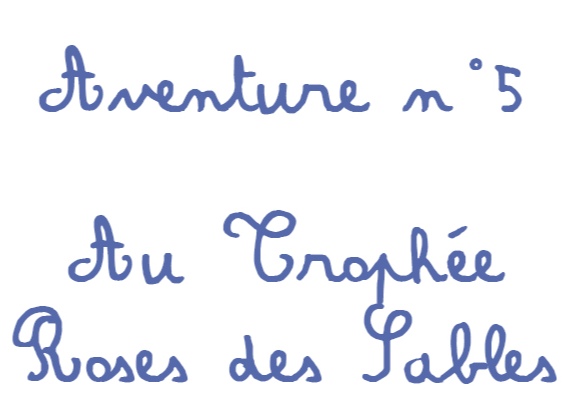 Aventure n°5
Au Trophée
Roses des Sables